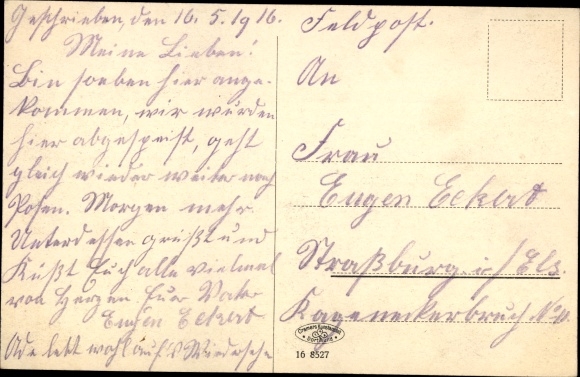 Geschrieben, den 16. 5. 1916.
Meine Lieben!
Bin soeben hier ange-
kommen, wir wurden
hier abgespeist, geht
gleich wieder weiter nach
Posen. Morgen mehr.
Unterdessen grüßt und
Küßt Euch alle vielmal
von Herzen Euer Vater
Eugen Eckert
Ade lebt wohl auf's Wiedersehn
Feldpost.
An
Frau
Eugen Eckert
Straßburg i/Els.
Kageneckerbruch No
16 8527